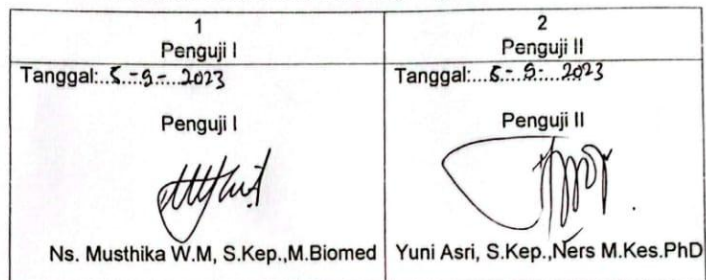 1
Penguji I
Tanggal: 5-9-2023
Penguji I
Ns. Musthika W.M, S.Kep.,M.Biomed
2
Penguji II
Tanggal: 5-9-2023
Penguji II
Yuni Asri, S.Kep.,Ners M.Kes.PhD